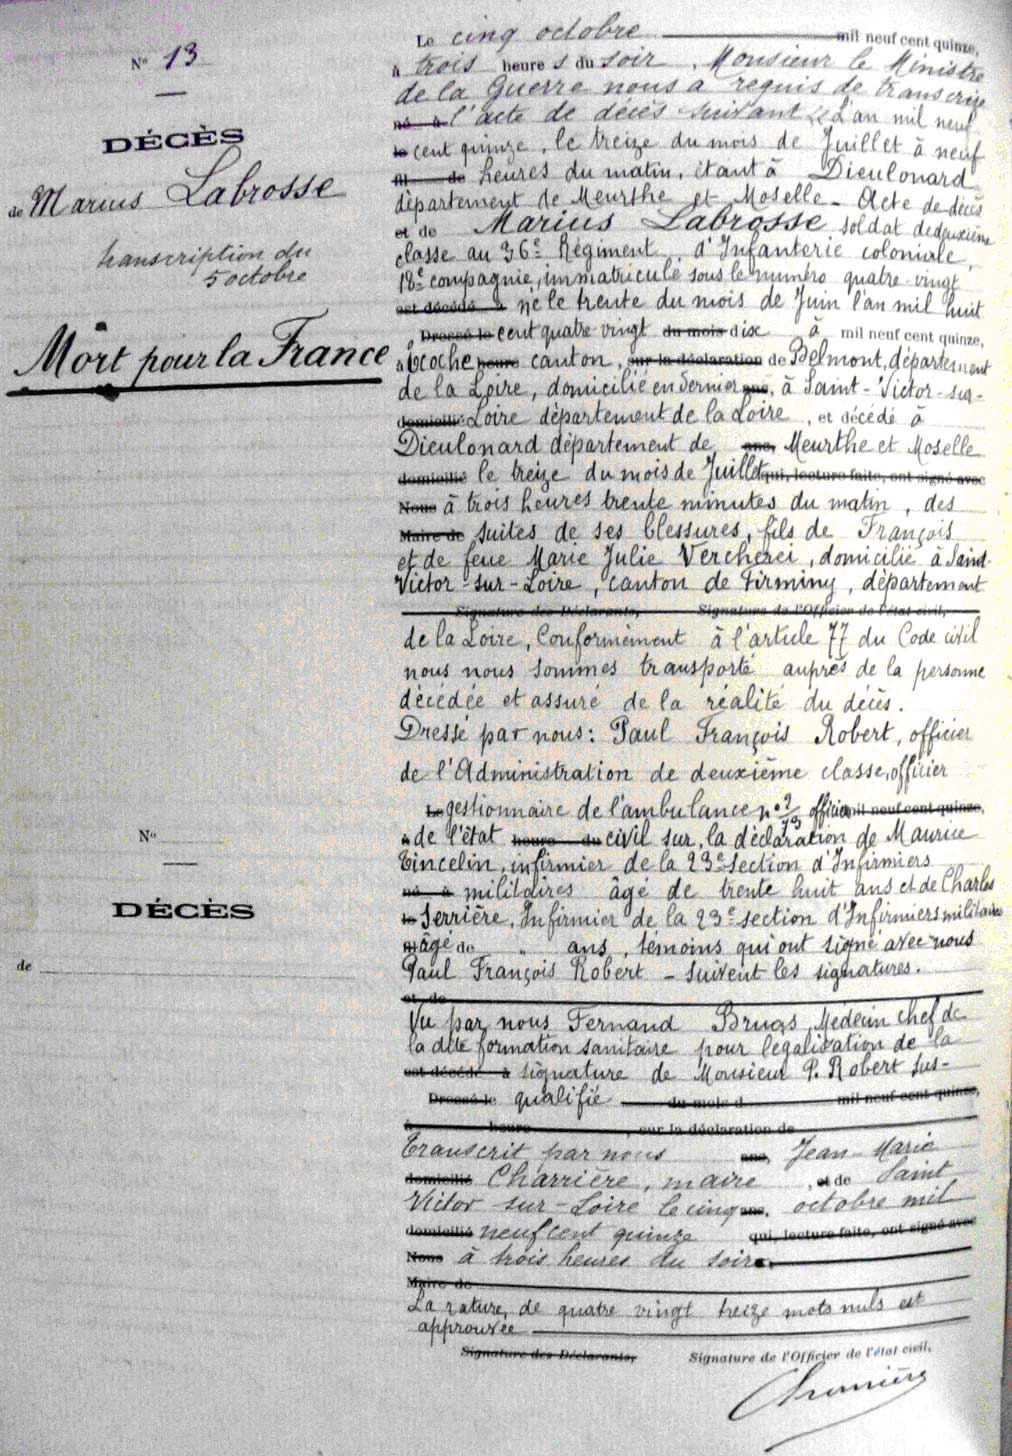 N° 13
DÉCÈS
de Marius Labrosse
transcription du
5 octobre
Mort pour la France
Le cinq octobre mil neuf cent quinze,
à trois heures du soir, Monsieur le Ministre
de la Guerre nous a requis de transcrire
né à l'acte de décès suivant L'an mil neuf
le cent quinze, le treize du mois de Juillet à neuf
fil de heures du matin, étant à Dieulonard
département de Meurthe et Moselle - Acte de décès
et de Marius Labrosse soldat de deuxième
classe au 36e Régiment d'Infanterie coloniale,
18e compagnie, immatriculé sous le numéro quatre-vingt
est décédé à né le trente du mois de Juin l'an mil huit
Dressé le cent quatre vingt du mois dix à mil neuf cent quinze,
à Ecoche heure canton, sur la déclaration de Belmont, département
de la Loire, domicilié en dernier ans, à Saint-Victor-sur-
domicilié Loire département de la Loire, et décédé à
Dieulonard département de ans, Meurthe et Moselle
domicilié le treize du mois de Juillet qui, lecture faite, ont signé avec
Nous à trois heures trente minutes du matin, des
Maire de suites de ses blessures, fils de François
et de feue Marie Julie Vercherei, domicilié à Saint-
Victor-sur-Loire, canton de Firminy, département
Signature des Déclarants, Signature de l'Officier de l'état civil,
de la Loire, Conformément à l'article 77 du Code civil
nous nous sommes transporté auprès de la personne
décédée et assuré de la réalité du décès.
Dressé par nous: Paul François Robert, officier
de l'Administration de deuxième classe, officier
Le gestionnaire de l'ambulance n° 2/73 officier mil neuf cent quinze,
à de l'état heure du civil sur la déclaration de Maurice
Tincelin, infirmier de la 23e section d'Infirmiers
né à militaires âgé de trente huit ans et de Charles
le Serrière, Infirmier de la 23e section d'Infirmiers militaires
fil âgé de " ans, témoins qui ont signé avec nous
Paul François Robert - suivent les signatures.
et de
Vu par nous Fernand Brugs, Médecin chef de
la dite formation sanitaire pour légalisation de la
est décédé à signature de Monsieur P. Robert sus-
Dressé le qualifié du mois d mil neuf cent quinze,
à heure , sur la déclaration de
Transcrit par nous ans, Jean-Marie
domicilié Charrière, maire , et de Saint
Victor-sur-Loire le cinq ans, octobre mil
domicilié neuf cent quinze qui, lecture faite, ont signé avec
Nous à trois heures du soir.
Maire de
La rature de quatre vingt treize mots nuls est
approuvée
Signature des Déclarants, Signature de l'Officier de l'état civil,
Charrière
N°
DÉCÈS
de